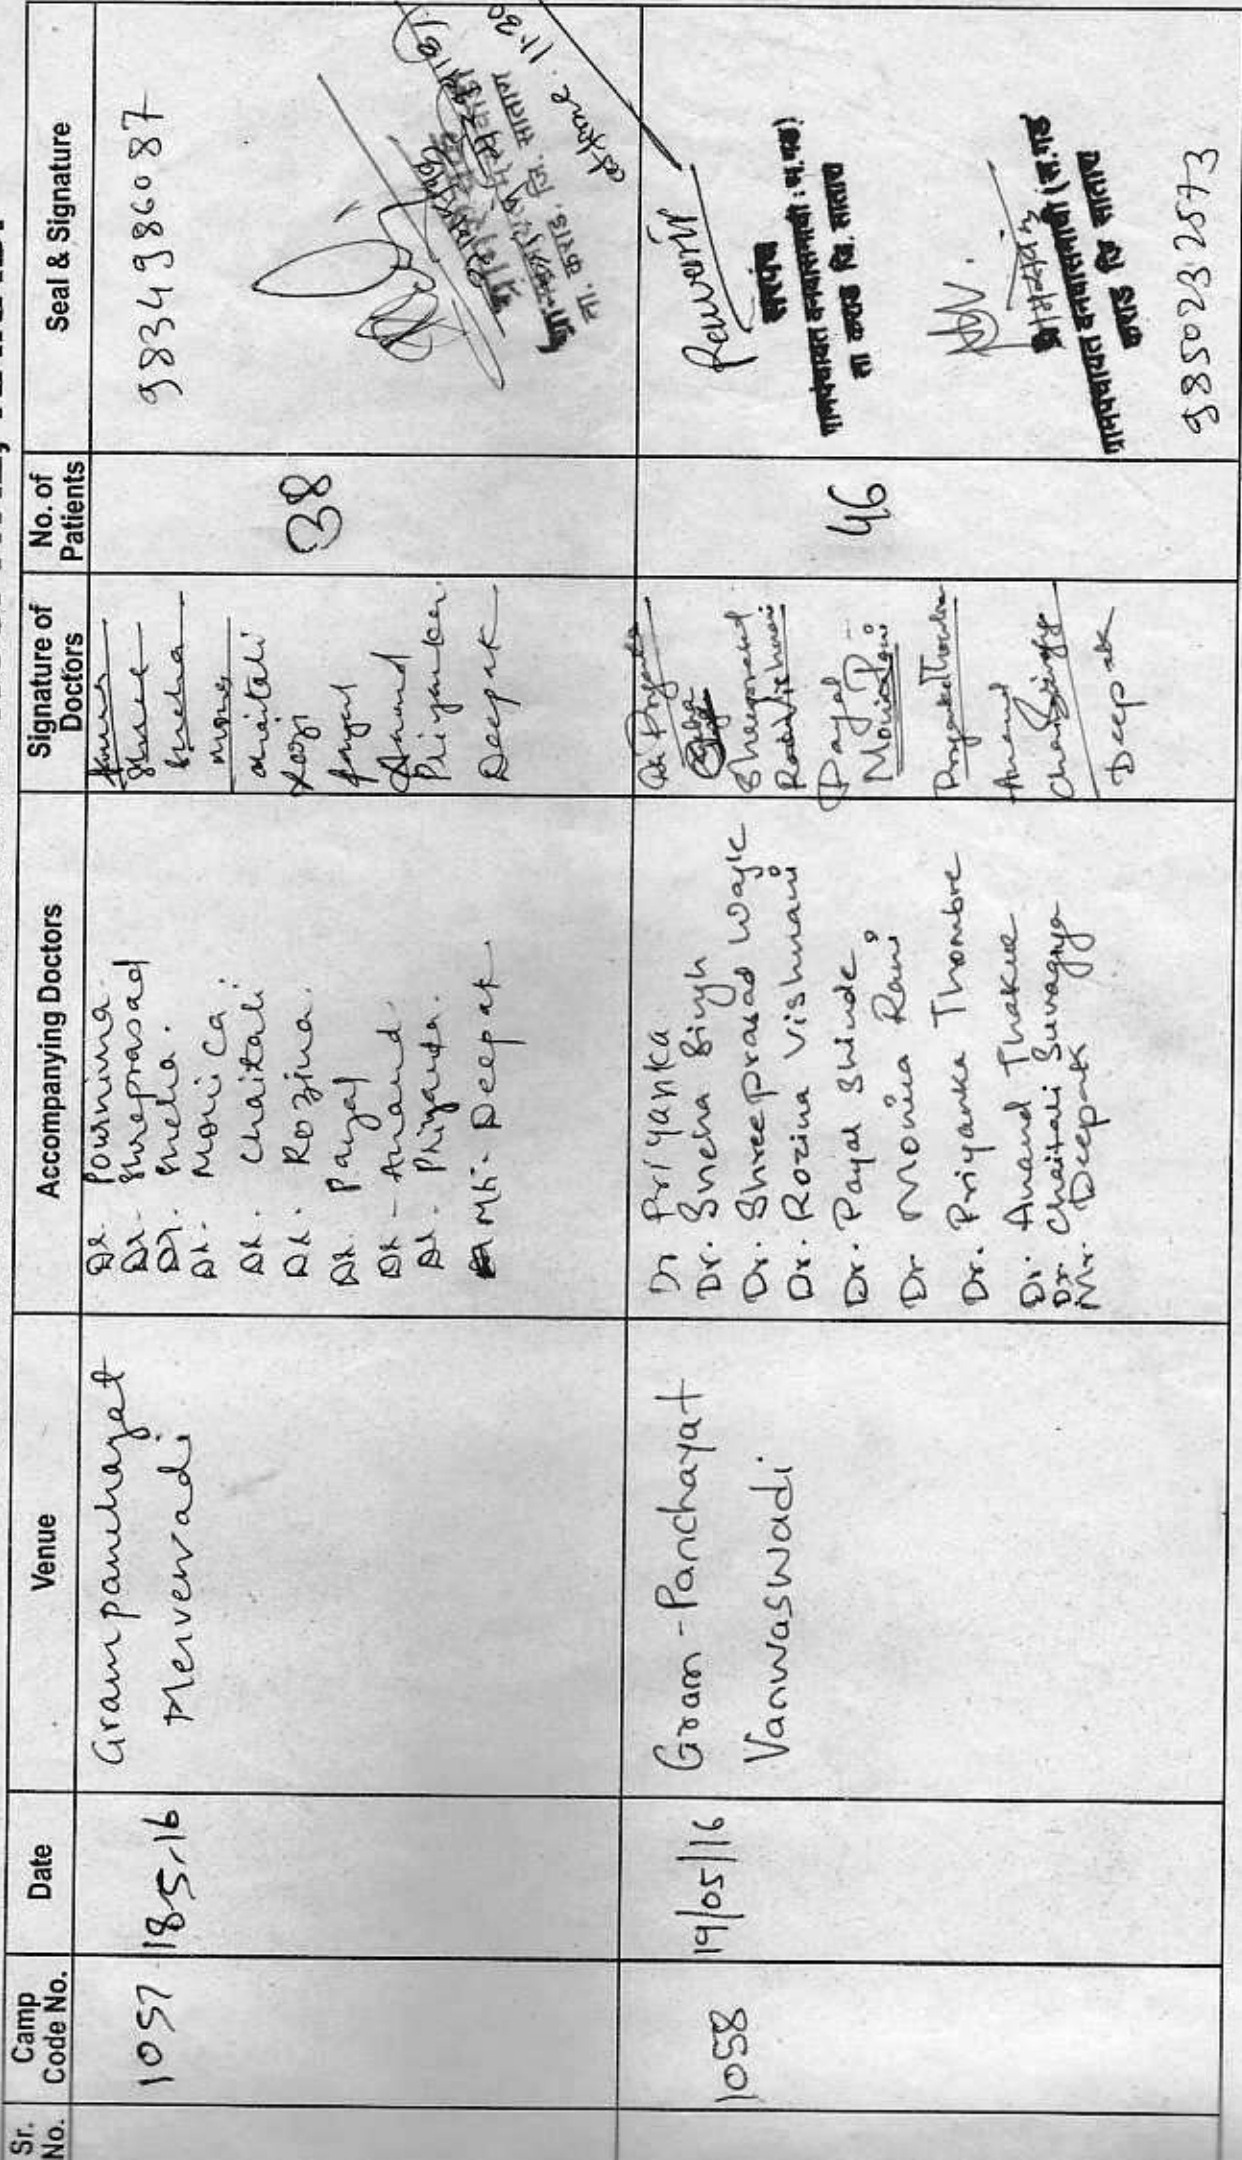 Sr. No.
Camp Code No.
Date
Venue
Accompanying Doctors
Signature of Doctors
No. of Patients
Seal & Signature
1057
18-5-16
Grampanchayat
Mervewadi
Dr. Pournima.
Dr. Shreprasad
Dr. Sneha.
Dr. Monica.
Dr. Chaitali
Dr. Rozina.
Dr. Payal
Dr - Anand.
Dr. Priyanka.
Mr. Deepak
Sneha
Chaitali
Rozi
Payal
Anand
Priyanka
Deepak
38
9834986087
ता. कराड, जि. सातारा
at time. 11.30
1058
19/05/16
Gram-Panchayat
Vanwaswadi
Dr Priyanka
Dr. Sneha Singh
Dr. Shreeprasad Wagle
Dr. Rozina Vishnani
Dr. Payal Shinde
Dr Monica Rani
Dr. Priyanka Thombre
Dr. Anand Thakur
Dr. Chaitali Suvagiya
Mr. Deepak
Dr Priyanka
Shreeprasad
Rozina Vishnani
Payal
Monica Rani
Priyanka Thombre
Anand
Deepak
46
सरपंच
ग्रामपंचायत वनवासमाची (ख.पं.)
ता कराड जि. सातारा
ग्रामसेवक
ग्रामपंचायत वनवासमाची (ख.पं.)
कराड जि सातारा
9850232573